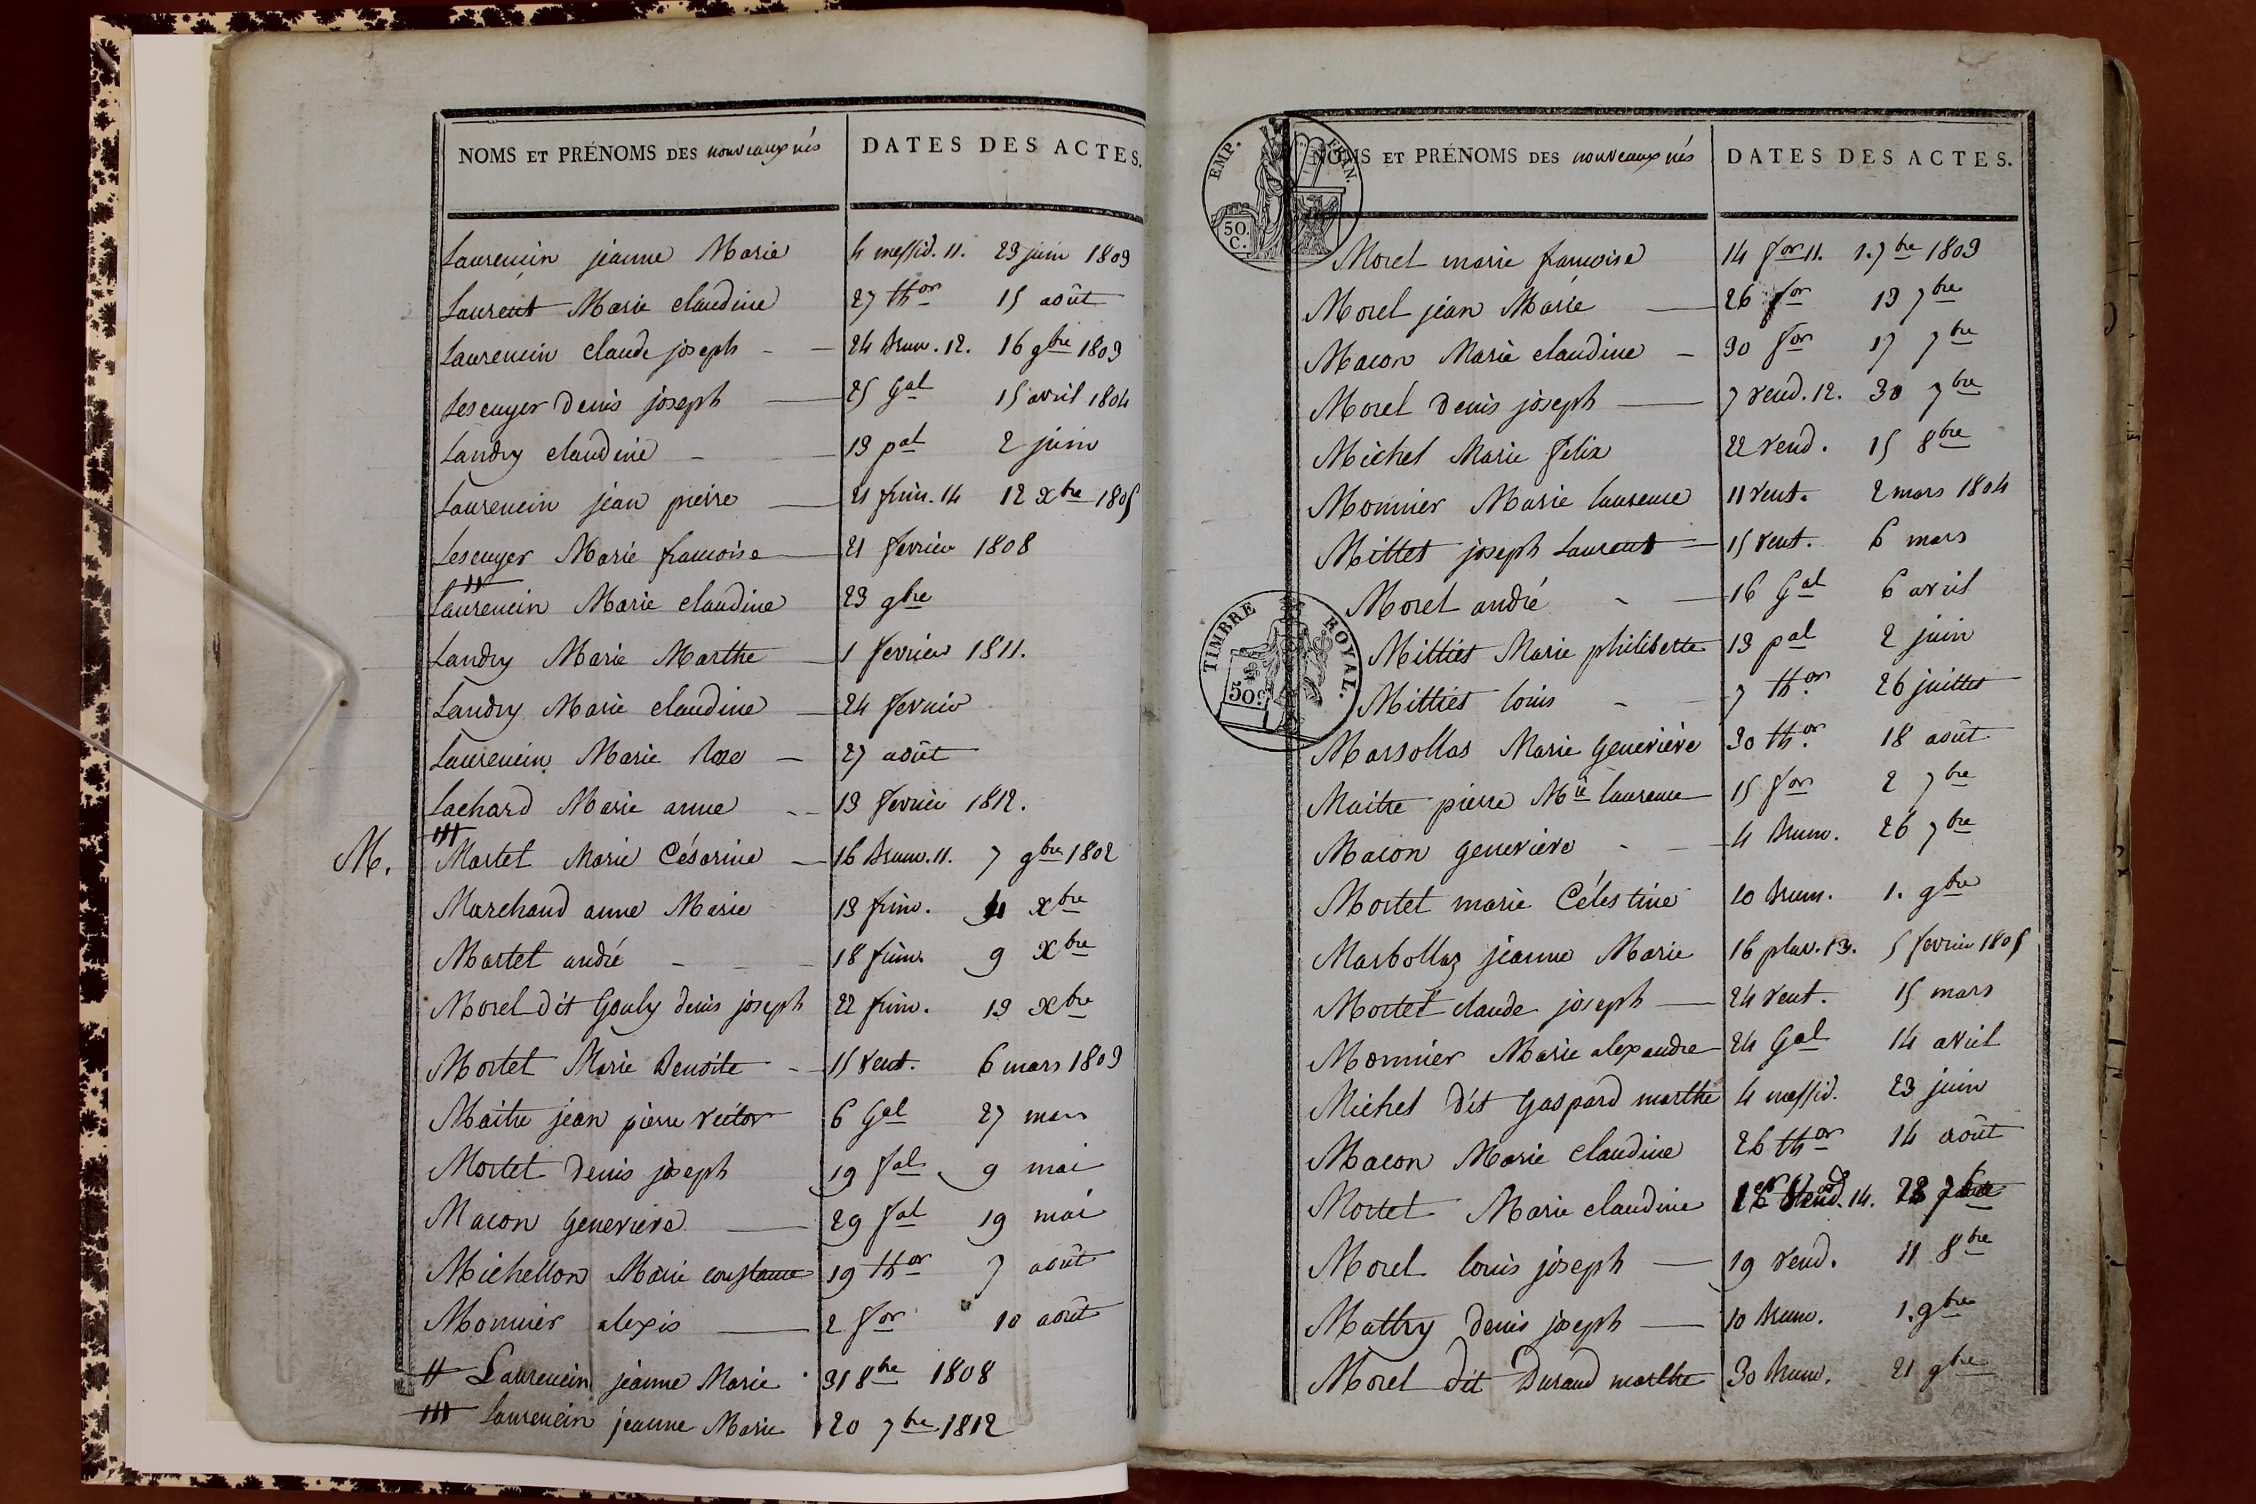 NOMS ET PRÉNOMS DES nouveaux nés DATES DES ACTES.
Laurencin jeanne Marie 4 messid. 11. 23 juin 1803
Laurent Marie claudine 27 thor 15 août
Laurencin claude joseph 24 brum. 12. 16 9bre 1803
Lescuyer denis joseph 25 Gal 15 avril 1804
Landry claudine 13 pal 2 juin
Laurencin jean pierre 21 frim. 14 12 Xbre 1805
Lescuyer Marie francoise 21 fevrier 1808
Laurencin Marie claudine 23 9bre
Landry Marie Marthe 1 fevrier 1811.
Landry Marie claudine 24 fevrier
Laurencin Marie Rose 27 août
Lachard Marie anne 13 fevrier 1812.
M. Mortel Marie Césarine 16 brum. 11. 7 9bre 1802
Marchand anne Marie 13 frim. 4 Xbre
Martet andré 18 frim. 9 Xbre
Morel dit Gouly denis joseph 22 frim. 13 Xbre
Mortet Marie Benoite 15 vent. 6 mars 1803
Maitre jean pierre victor 6 Gal 27 mars
Mortet denis joseph 19 fal 9 mai
Macon Genevieve 29 fal 19 mai
Michellon Marie constance 19 thor 7 août
Monnier alexis 2 for 10 août
# Laurencin jeanne Marie 31 8bre 1808
Laurencin jeanne Marie 20 7bre 1812
EMP. FRAN.
50. C.
NOMS ET PRÉNOMS DES nouveaux nés DATES DES ACTES.
Morel marie francoise 14 for 11. 1. 7bre 1803
Morel jean Marie 26 for 13 7bre
Macon Marie claudine 30 for 17 7bre
Morel denis joseph 7 vend. 12. 30 7bre
Michel Marie felix 22 vend. 15 8bre
Monnier Marie laurence 11 vent. 2 mars 1804
Millet joseph Laurent 15 vent. 6 mars
Morel andré 16 Gal 6 avril
TIMBRE ROYAL.
50c
Milliet Marie philiberte 13 pal 2 juin
Milliet louis 7 thor. 26 juillet
Marsollas Marie Genevieve 30 thor. 18 août
Maitre pierre Mie laurence 15 for 2 7bre
Macon genevieve 4 brum. 26 7bre
Mortet marie Célestine 10 brum. 1. 9bre
Marbollaz jeanne Marie 16 pluv. 13. 5 fevrier 1805
Mortet claude joseph 24 vent. 15 mars
Monnier Marie alexandre 24 Gal 14 avril
Michel dit Gaspard marthe 4 messid. 23 juin
Macon Marie claudine 26 thor 14 août
Mortet Marie claudine 1er Vend. 14. 23 7bre
Morel louis joseph 19 vend. 11 8bre
Mathy denis joseph 10 brum. 1. 9bre
Morel dit Durand marthe 30 brum. 21 9bre